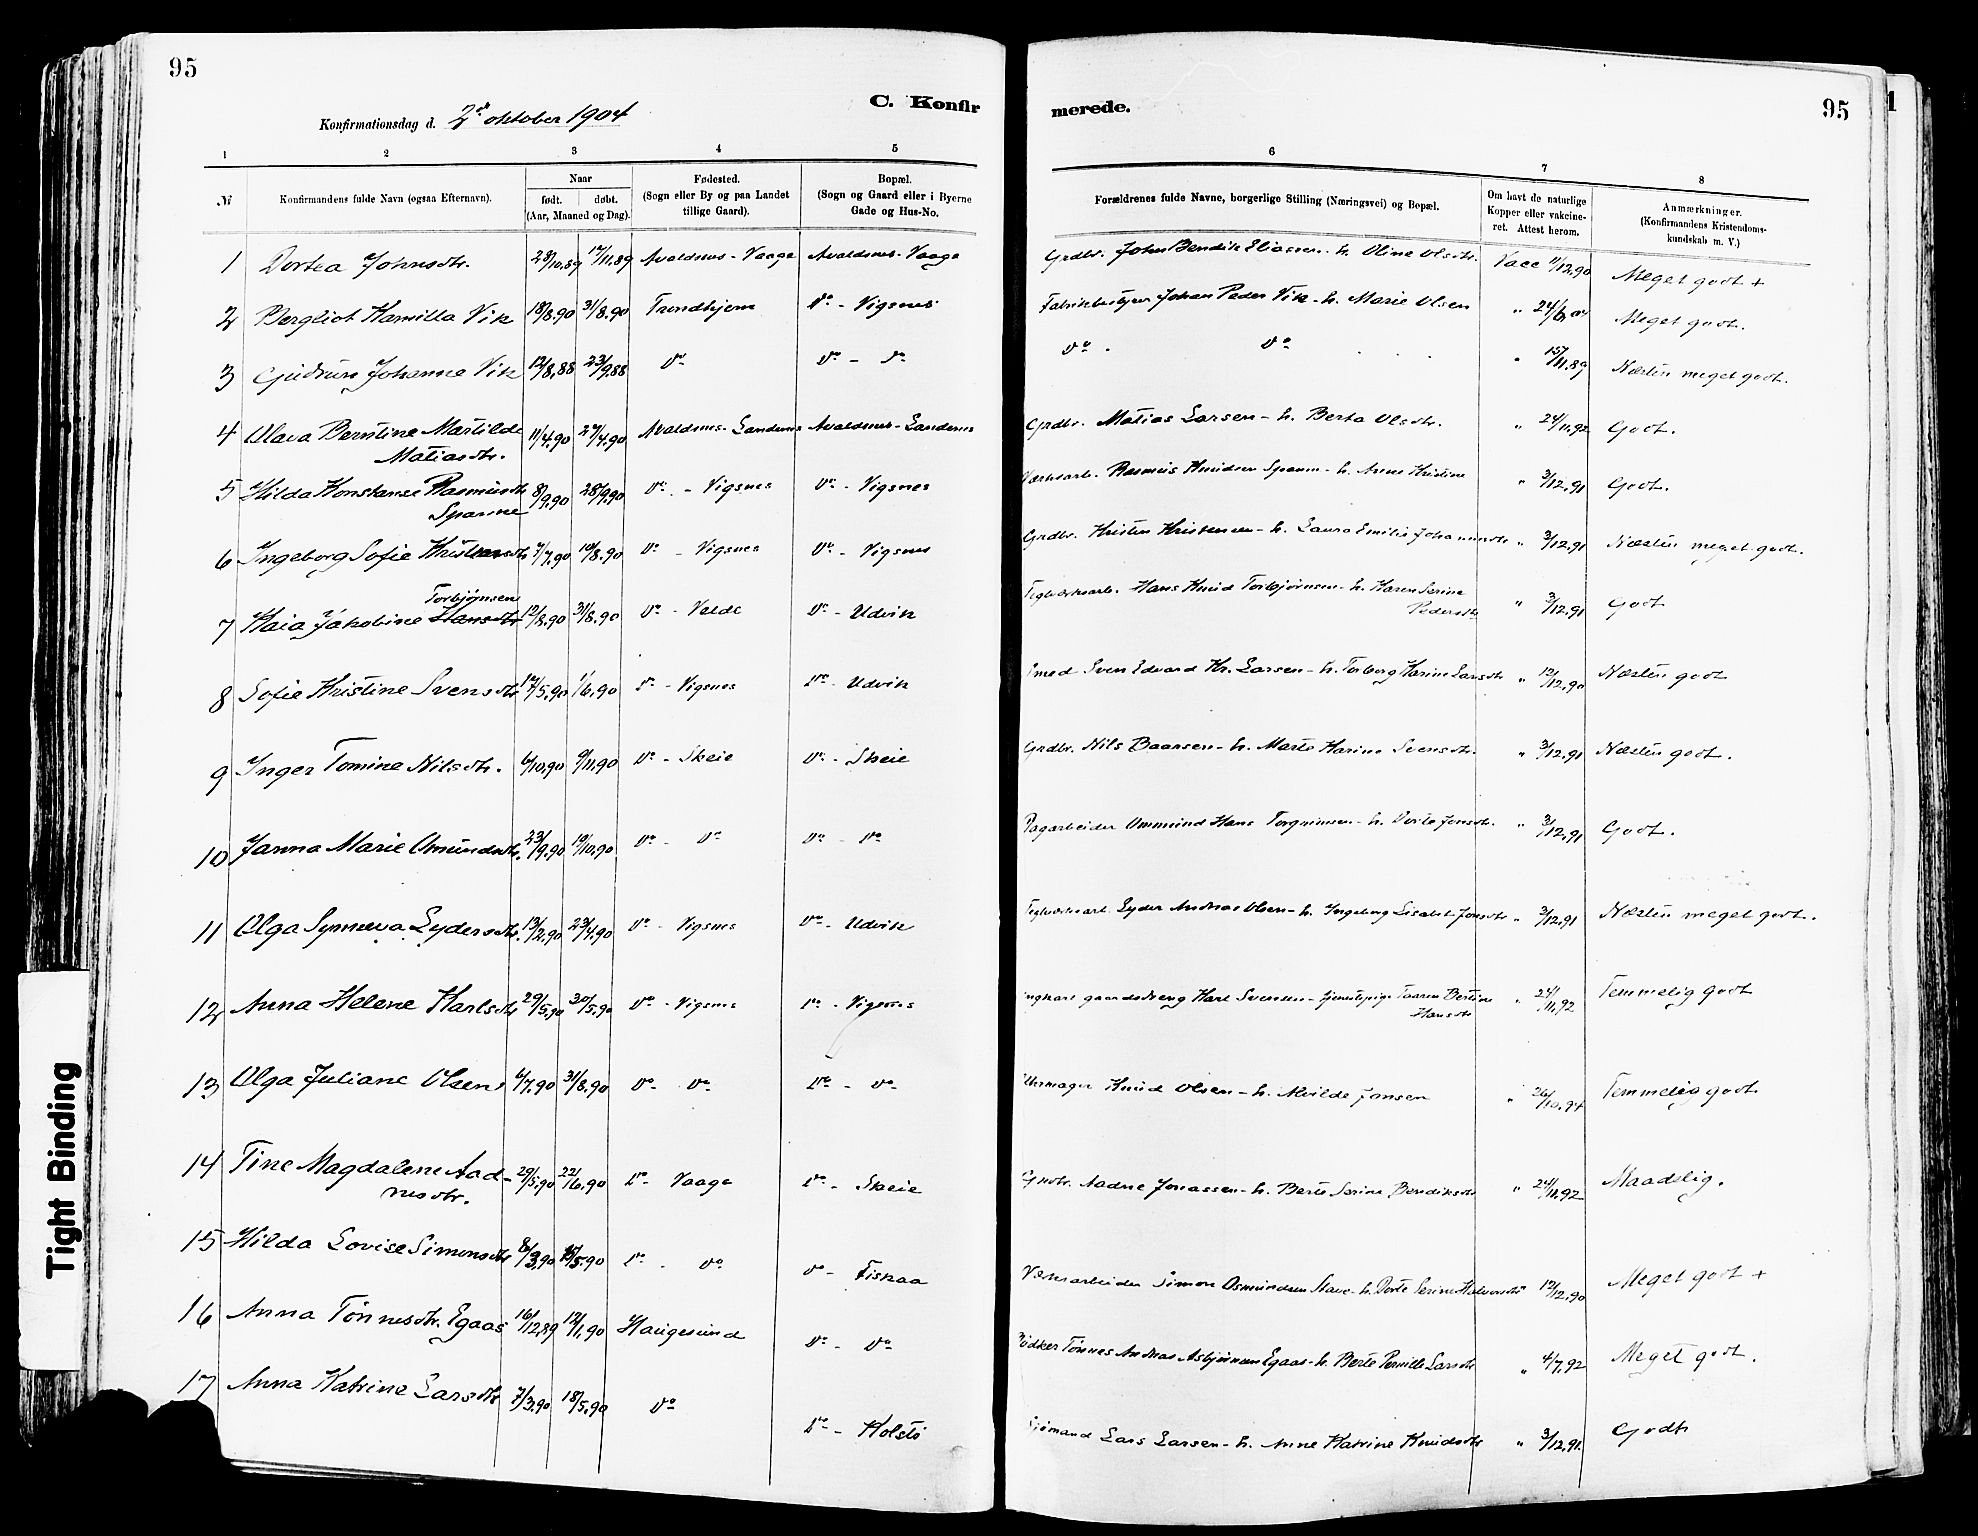 95
C. Konfir
merede.
95
1
Konfirmationsdag d. 2d oktober 1904
1 2 3 4 5 6 7 8
№
Konfirmandens fulde Navn (ogsaa Efternavn).
Naar
født. døbt.
(Aar, Maaned og Dag).
Fødested.
(Sogn eller By og paa Landet
tillige Gaard).
Bopæl.
(Sogn og Gaard eller i Byerne
Gade og Hus-No.
Forældrenes fulde Navne, borgerlige Stilling (Næringsvei) og Bopæl.
Om havt de naturlige
Kopper eller vakcine-
ret. Attest herom.
Anmærkninger.
(Konfirmandens Kristendoms-
kundskab m. V.)
1 Dortea Johnsdtr. 28/10.89 17/11.89 Avaldsnes - Vaage Avaldsnes - Vaage Grdbr. John Bendik Eliassen - h. Oline Olsdtr. Vacc 11/12.90 Meget godt +
2 Bergliot Kamilla Vik 18/8.90 31/8.90 Trondhjem Do - Vigsnes Johan Peder Vik - h. Marie Olsen " 24/6.04 Meget godt.
3 Gudrun Johanne Vik 12/8.88 23/9.88 Do Do - Do Do Do " 15/11.89 Næsten meget godt.
4 Olava Berntine Martilde
Matiasdtr. 11/4.90 27/4.90 Avaldsnes - Sandenes Avaldsnes - Sandenes Grdbr. Matias Larsen - h. Berta Olsdtr. " 24/11.92 Godt.
5 Hilda Konstanse Rasmusdtr
Spanne 8/9.90 28/9.90 Do - Vigsnes Do - Vigsnes Rasmus Knudsen Spanne - h. Anne Kristine " 3/12.91 Godt.
6 Ingeborg Sofie Kristensdtr 7/7.90 10/8.90 Do - Vigsnes Do - Vigsnes Grdbr. Kristen Kristensen - h. Laura Emilie Johannesdtr " 3/12.91 Næsten meget godt.
Torbjørnsen
7 Kaia Jakobine Hansdtr 12/8.90 31/8.90 Do - Velde Do - Udvik Teglverksarb. Hans Knud Torbjørnsen - h. Karen Serine
Pedersdtr " 3/12.91 Godt
8 Sofie Kristine Svensdtr 14/5.90 1/6.90 Do - Vigsnes Do - Udvik Smed Sven Edvard Kr. Larsen - h. Torborg Karine Larsdtr " 12/12.90 Næsten godt
9 Inger Tomine Nilsdtr. 6/10.90 9/11.90 Do - Skeie Do - Skeie Grdbr. Nils Baarsen - h. Marte Karine Svensdtr. " 3/12.91 Næsten godt.
10 Janna Marie Omundsdtr. 23/9.90 19/10.90 Do - Do Do - Do Dagarbeider Ommund Hans Torgrimsen - h. Dorte Jonsdtr. " 3/12.91 Godt.
11 Olga Synneva Lydersdtr. 13/2.90 23/4.90 Do - Vigsnes Do - Udvik Teglverksarb. Lyder Andreas Olsen - h. Ingeborg Lisabet Jonsdtr " 3/12.91 Næsten meget godt.
12 Anna Helene Karlsdtr 29/5.90 30/5.90 Do - Vigsnes Do - Vigsnes gaardsdreng Karl Svensen - tjenestepige Taaren Bertine
Hansdtr " 24/11.92 Temmelig godt
13 Olga Juliane Olsen 6/7.90 31/8.90 Do - Do Do - Do Uhrmager Knud Olsen - h. Alvilde Jansen " 26/10.94 Temmelig godt
14 Tine Magdalene Aad-
nesdtr. 29/5.90 22/6.90 Do - Vaage Do - Skeie Aadne Jonassen - h. Berte Serine Bendiksdtr " 24/11.92 Maadelig.
15 Hilda Lovise Simonsdtr 8/3.90 15/5.90 Do - Do Do - Fiskaa Verksarbeider Simon Osmundsen Stave - h. Dorte Serine Halvorsdtr " 12/12.90 Meget godt +
16 Anna Tønnesdtr. Egaas 16/12.89 12/1.90 Haugesund Do - Do Bødker Tønnes Andreas Asbjørnsen Egaas - h. Berte Pernille Larsdtr " 4/7.92 Meget godt.
17 Anna Katrine Larsdtr 7/3.90 18/5.90 Do Do - Kolstø Sjømand Lars Larsen - h. Anne Katrine Knudsdtr " 3/12.91. Godt
Tight Binding